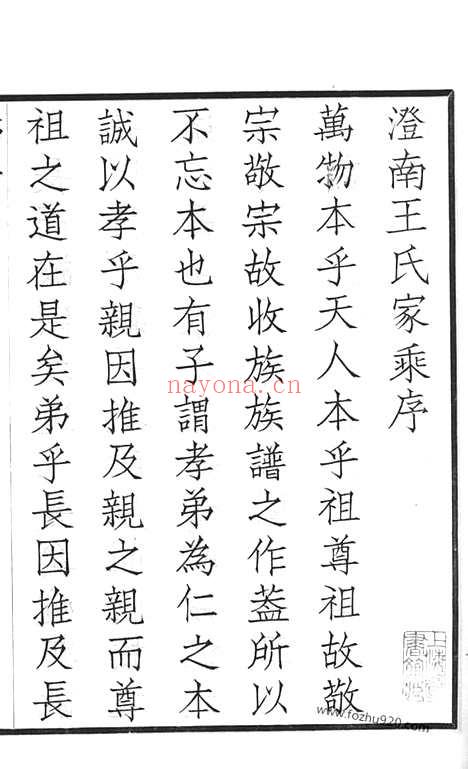 澄南王氏家乘序
萬物本乎天人本乎祖尊祖故敬
宗敬宗故收族族譜之作葢所以
不忘本也有子謂孝弟為仁之本
誠以孝乎親因推及親之親而尊
祖之道在是矣弟乎長因推及長
nayona.cn
www.fozhu920.com